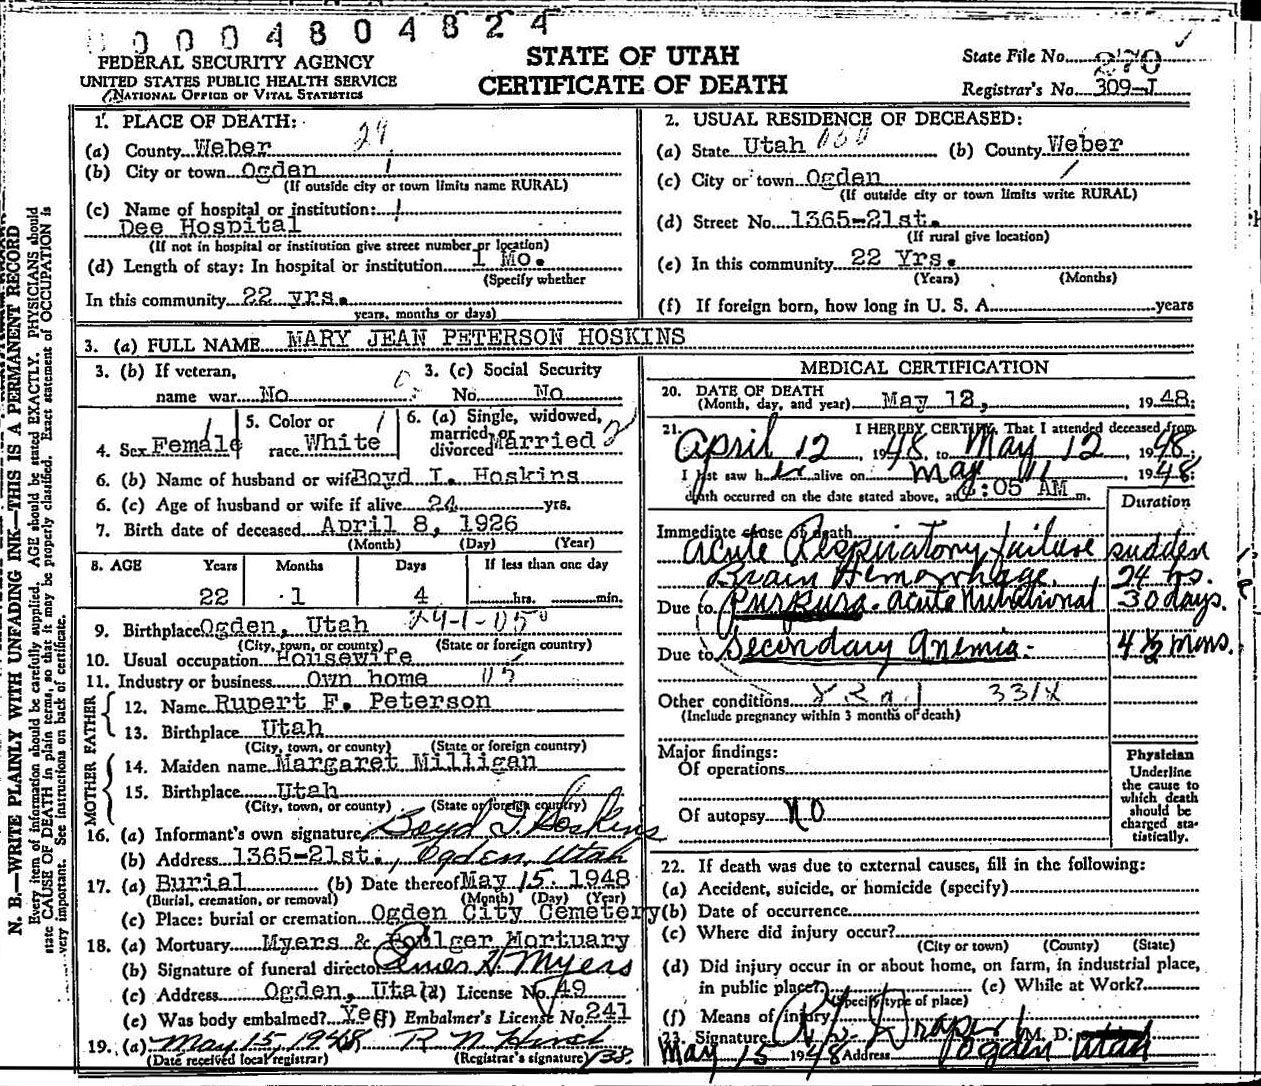 0004804824
FEDERAL SECURITY AGENCY
UNITED STATES PUBLIC HEALTH SERVICE
NATIONAL OFFICE OF VITAL STATISTICS
STATE OF UTAH
CERTIFICATE OF DEATH
State File No. 270
Registrar's No. 309-J
1. PLACE OF DEATH: 29
(a) County Weber
(b) City or town Ogden
(If outside city or town limits name RURAL)
(c) Name of hospital or institution:
Dee Hospital
(If not in hospital or institution give street number or location)
(d) Length of stay: In hospital or institution 1 Mo.
(Specify whether
In this community 22 yrs.
years, months or days)
2. USUAL RESIDENCE OF DECEASED:
(a) State Utah (b) County Weber
(c) City or town Ogden
(If outside city or town limits write RURAL)
(d) Street No. 1365-21st.
(If rural give location)
(e) In this community 22 Yrs.
(Years) (Months)
(f) If foreign born, how long in U. S. A. years
3. (a) FULL NAME MARY JEAN PETERSON HOSKINS
3. (b) If veteran, name war No
3. (c) Social Security No. No
4. Sex Female
5. Color or race White
6. (a) Single, widowed, married, or divorced Married 2
6. (b) Name of husband or wife Boyd I. Hoskins
6. (c) Age of husband or wife if alive 24 yrs.
7. Birth date of deceased April 8, 1926
(Month) (Day) (Year)
8. AGE Years Months Days If less than one day
22 1 4 hrs. min.
9. Birthplace Ogden, Utah 24-1-050
(City, town, or county) (State or foreign country)
10. Usual occupation Housewife
11. Industry or business Own home
FATHER
12. Name Rupert F. Peterson
13. Birthplace Utah
(City, town, or county) (State or foreign country)
MOTHER
14. Maiden name Margaret Milligan
15. Birthplace Utah
(City, town, or county) (State or foreign country)
16. (a) Informant's own signature Boyd I. Hoskins
(b) Address 1365-21st., Ogden, Utah
17. (a) Burial (b) Date thereof May 15. 1948
(Burial, cremation, or removal) (Month) (Day) (Year)
(c) Place: burial or cremation Ogden City Cemetery
18. (a) Mortuary Myers & Foulger Mortuary
(b) Signature of funeral director Myers
(c) Address Ogden, Utah (d) License No. 49
(e) Was body embalmed? Yes (f) Embalmer's License No. 241
19. (a) May 15, 1948
(Date received local registrar) (Registrar's signature)
MEDICAL CERTIFICATION
20. DATE OF DEATH
(Month, day, and year) May 12, 1948;
21. I HEREBY CERTIFY, That I attended deceased from
April 12, 1948, to May 12, 1948;
I last saw her alive on May 11, 1948;
death occurred on the date stated above, at :05 AM m.
Duration
Immediate cause of death
Acute Respiratory failure sudden
Brain Hemorrhage. 24 hs.
Due to Purpura. acute nutritional 30 days.
Due to Secondary Anemia. 4 1/2 mons.
Other conditions 331X
(Include pregnancy within 3 months of death)
Major findings:
Of operations
Of autopsy NO
Physician
Underline
the cause to
which death
should be
charged sta-
tistically.
22. If death was due to external causes, fill in the following:
(a) Accident, suicide, or homicide (specify)
(b) Date of occurrence
(c) Where did injury occur?
(City or town) (County) (State)
(d) Did injury occur in or about home, on farm, in industrial place,
in public place? (e) While at Work?
(Specify type of place)
(f) Means of injury
23. Signature Draper M. D.
May 15 1948 Address Ogden Utah
N. B.—WRITE PLAINLY WITH UNFADING INK—THIS IS A PERMANENT RECORD
Every item of information should be carefully supplied. AGE should be stated EXACTLY. PHYSICIANS should
state CAUSE OF DEATH in plain terms, so that it may be properly classified. Exact statement of OCCUPATION is
very important. See instructions on back of certificate.